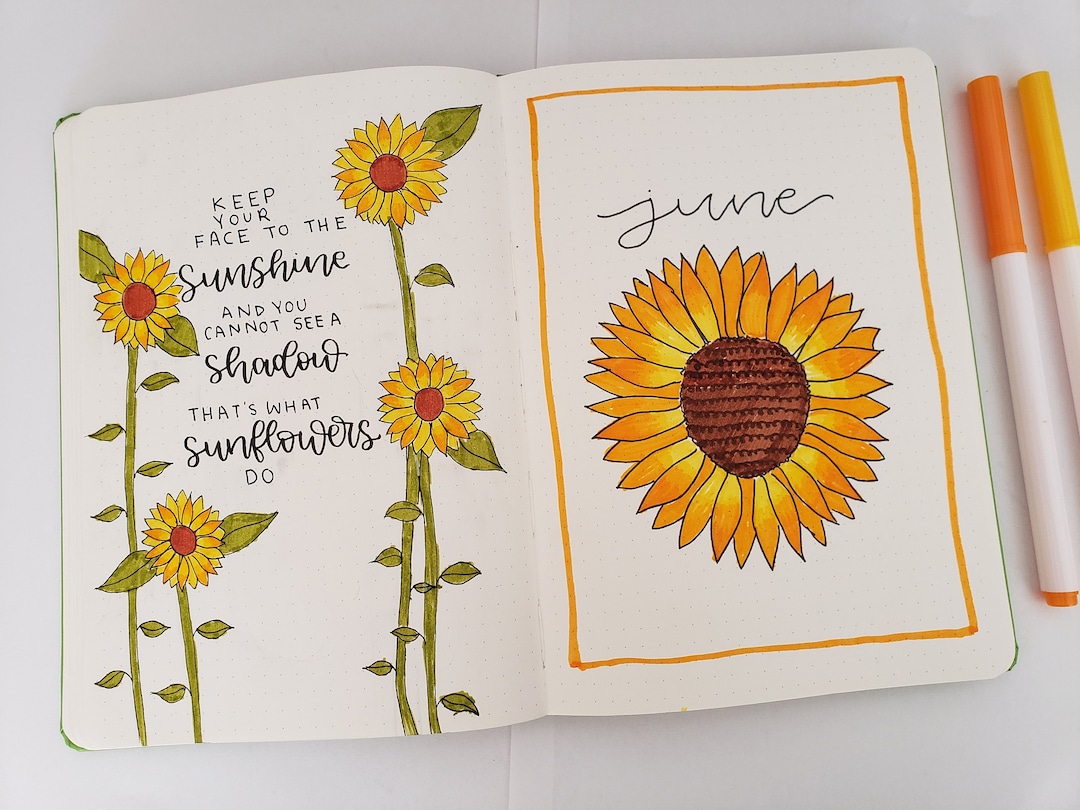 KEEP
YOUR
FACE TO THE
sunshine
AND YOU
CANNOT SEE A
shadow
THAT'S WHAT
sunflowers
DO
june